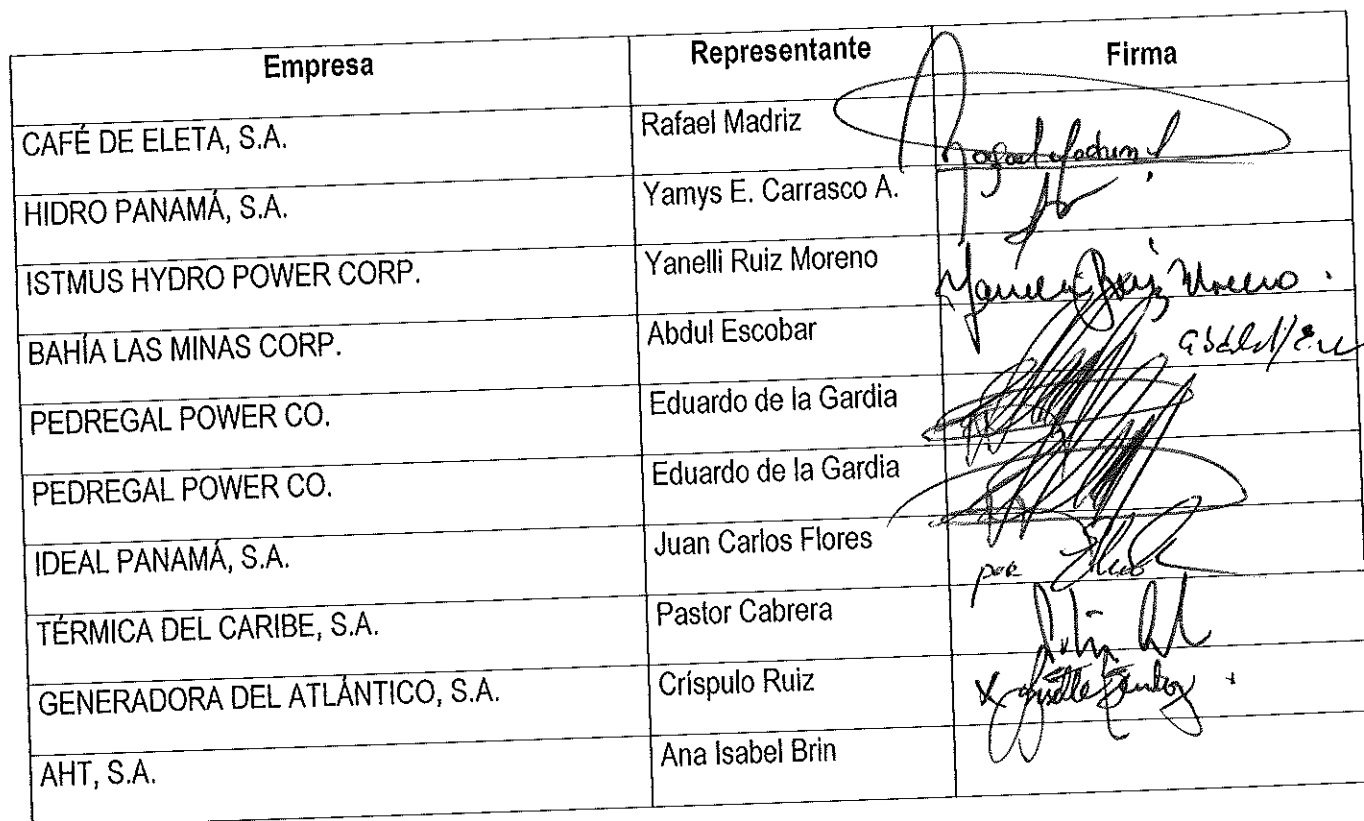 Empresa Representante Firma
CAFÉ DE ELETA, S.A. Rafael Madriz
HIDRO PANAMÁ, S.A. Yamys E. Carrasco A.
ISTMUS HYDRO POWER CORP. Yanelli Ruiz Moreno Moreno
BAHÍA LAS MINAS CORP. Abdul Escobar
PEDREGAL POWER CO. Eduardo de la Gardia
PEDREGAL POWER CO. Eduardo de la Gardia
IDEAL PANAMÁ, S.A. Juan Carlos Flores por
TÉRMICA DEL CARIBE, S.A. Pastor Cabrera
GENERADORA DEL ATLÁNTICO, S.A. Críspulo Ruiz
AHT, S.A. Ana Isabel Brin